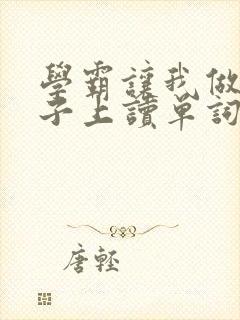 學霸讓我做
子上讀單詞
唐輕